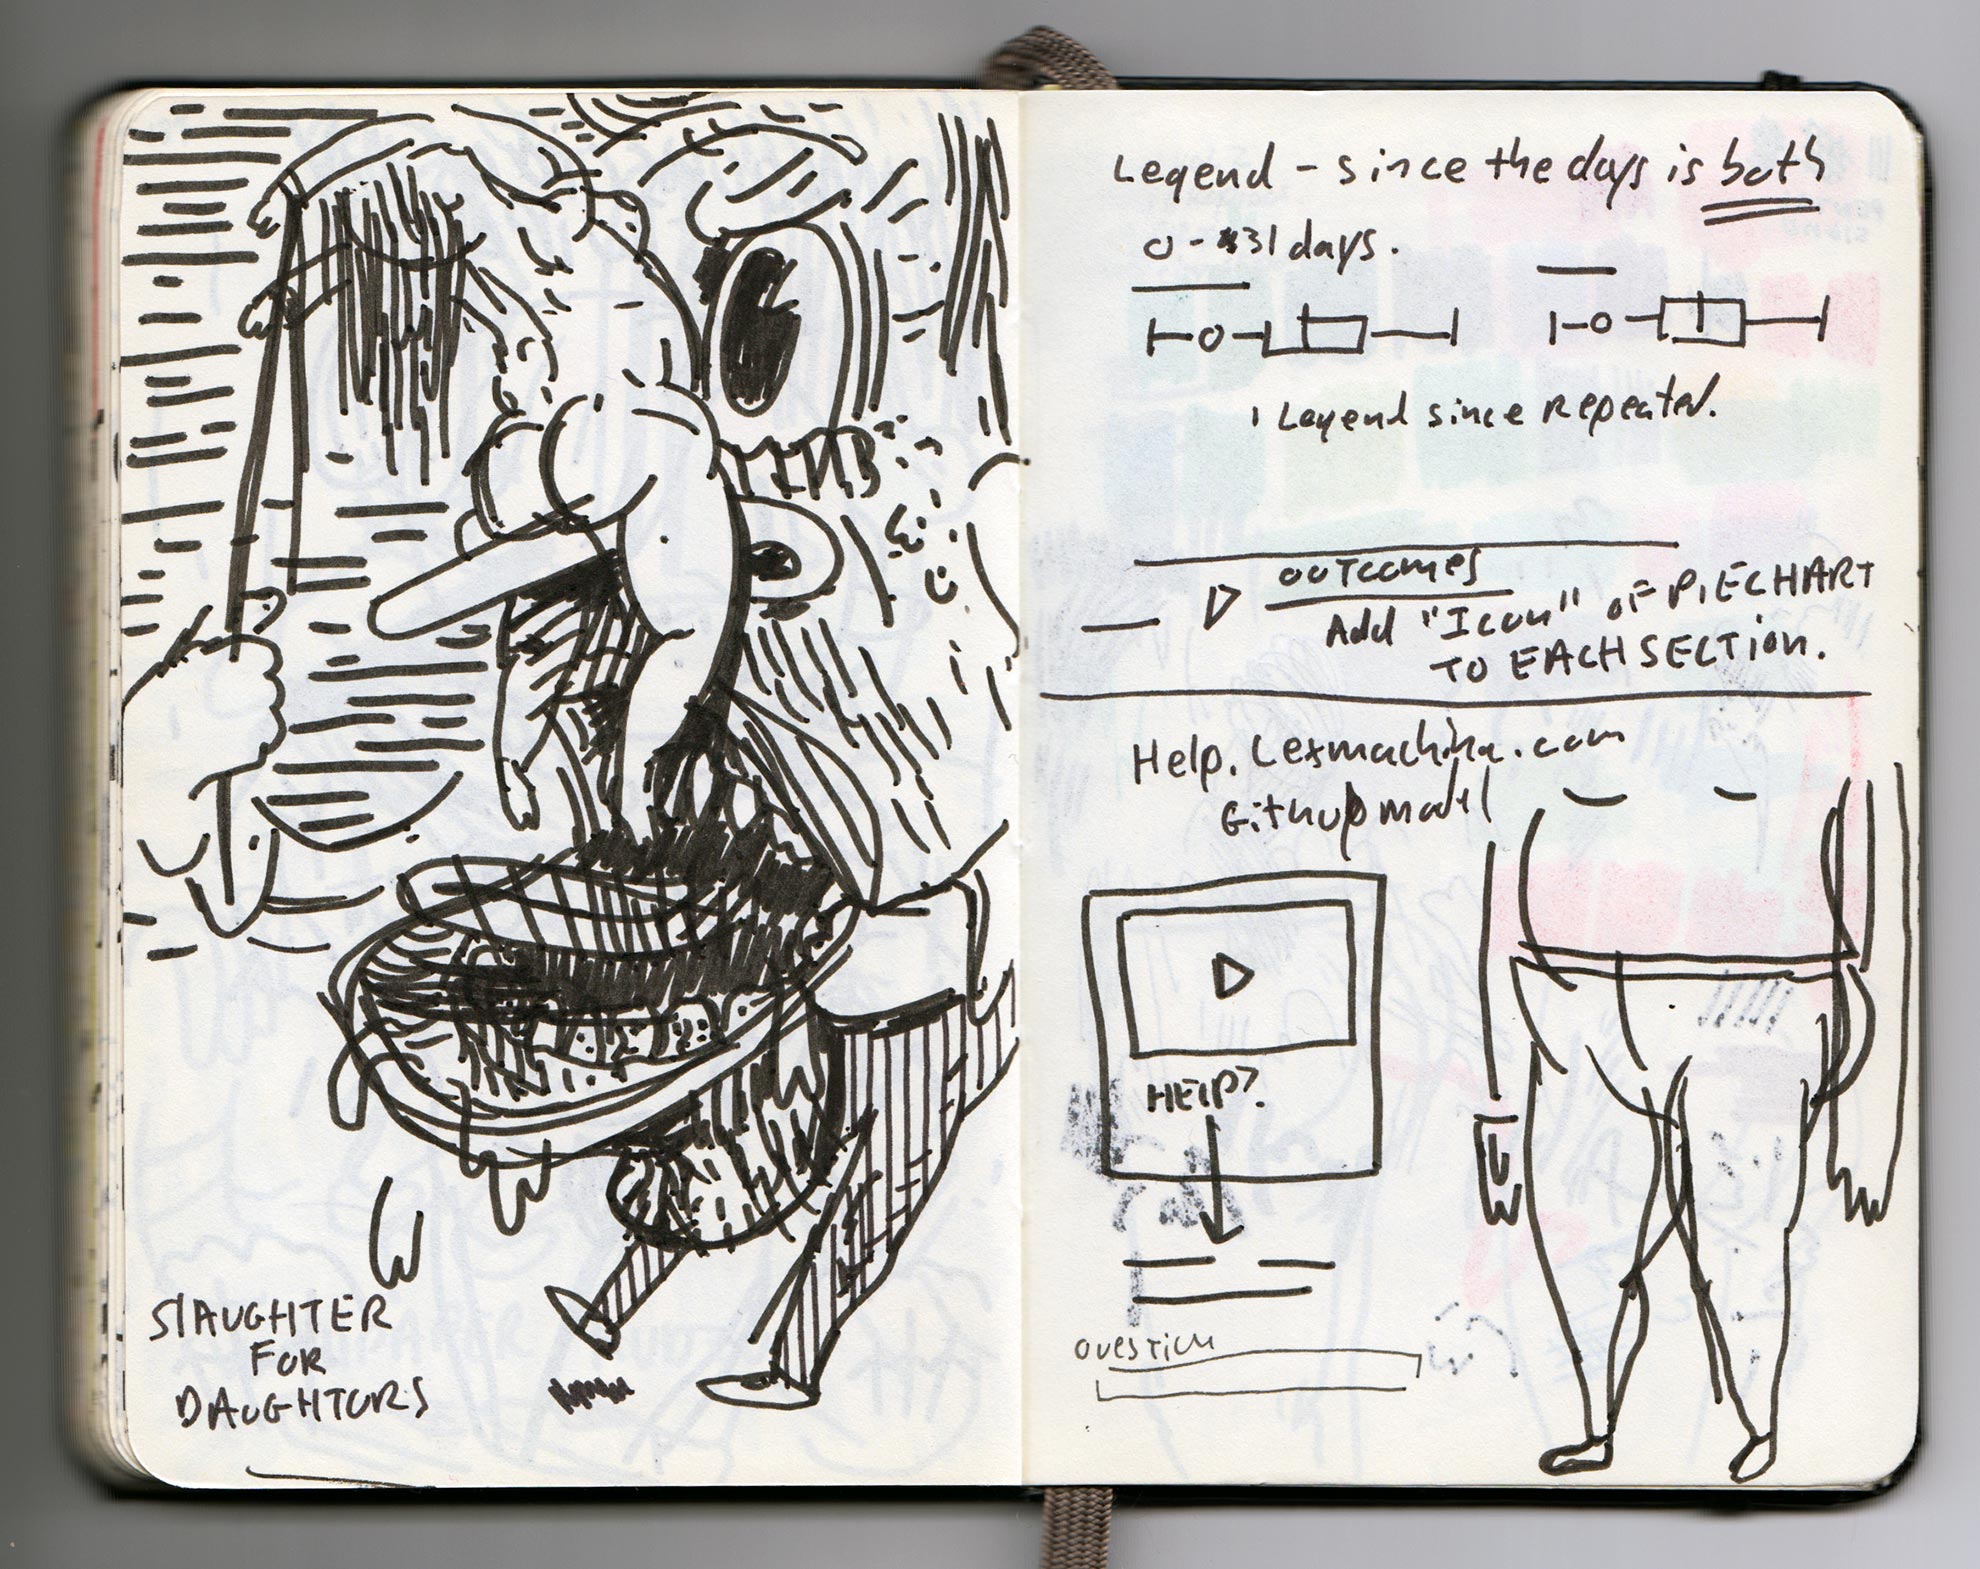 SLAUGHTER
FOR
DAUGHTORS
Legend - since the days is both
0 - 31 days.
1 Legend since repeated.
OUTCOMES
Add "Icon" OF PIECHART
TO EACH SECTION.
Help.Lexmachina.com
Github model
HELP?
QUESTION